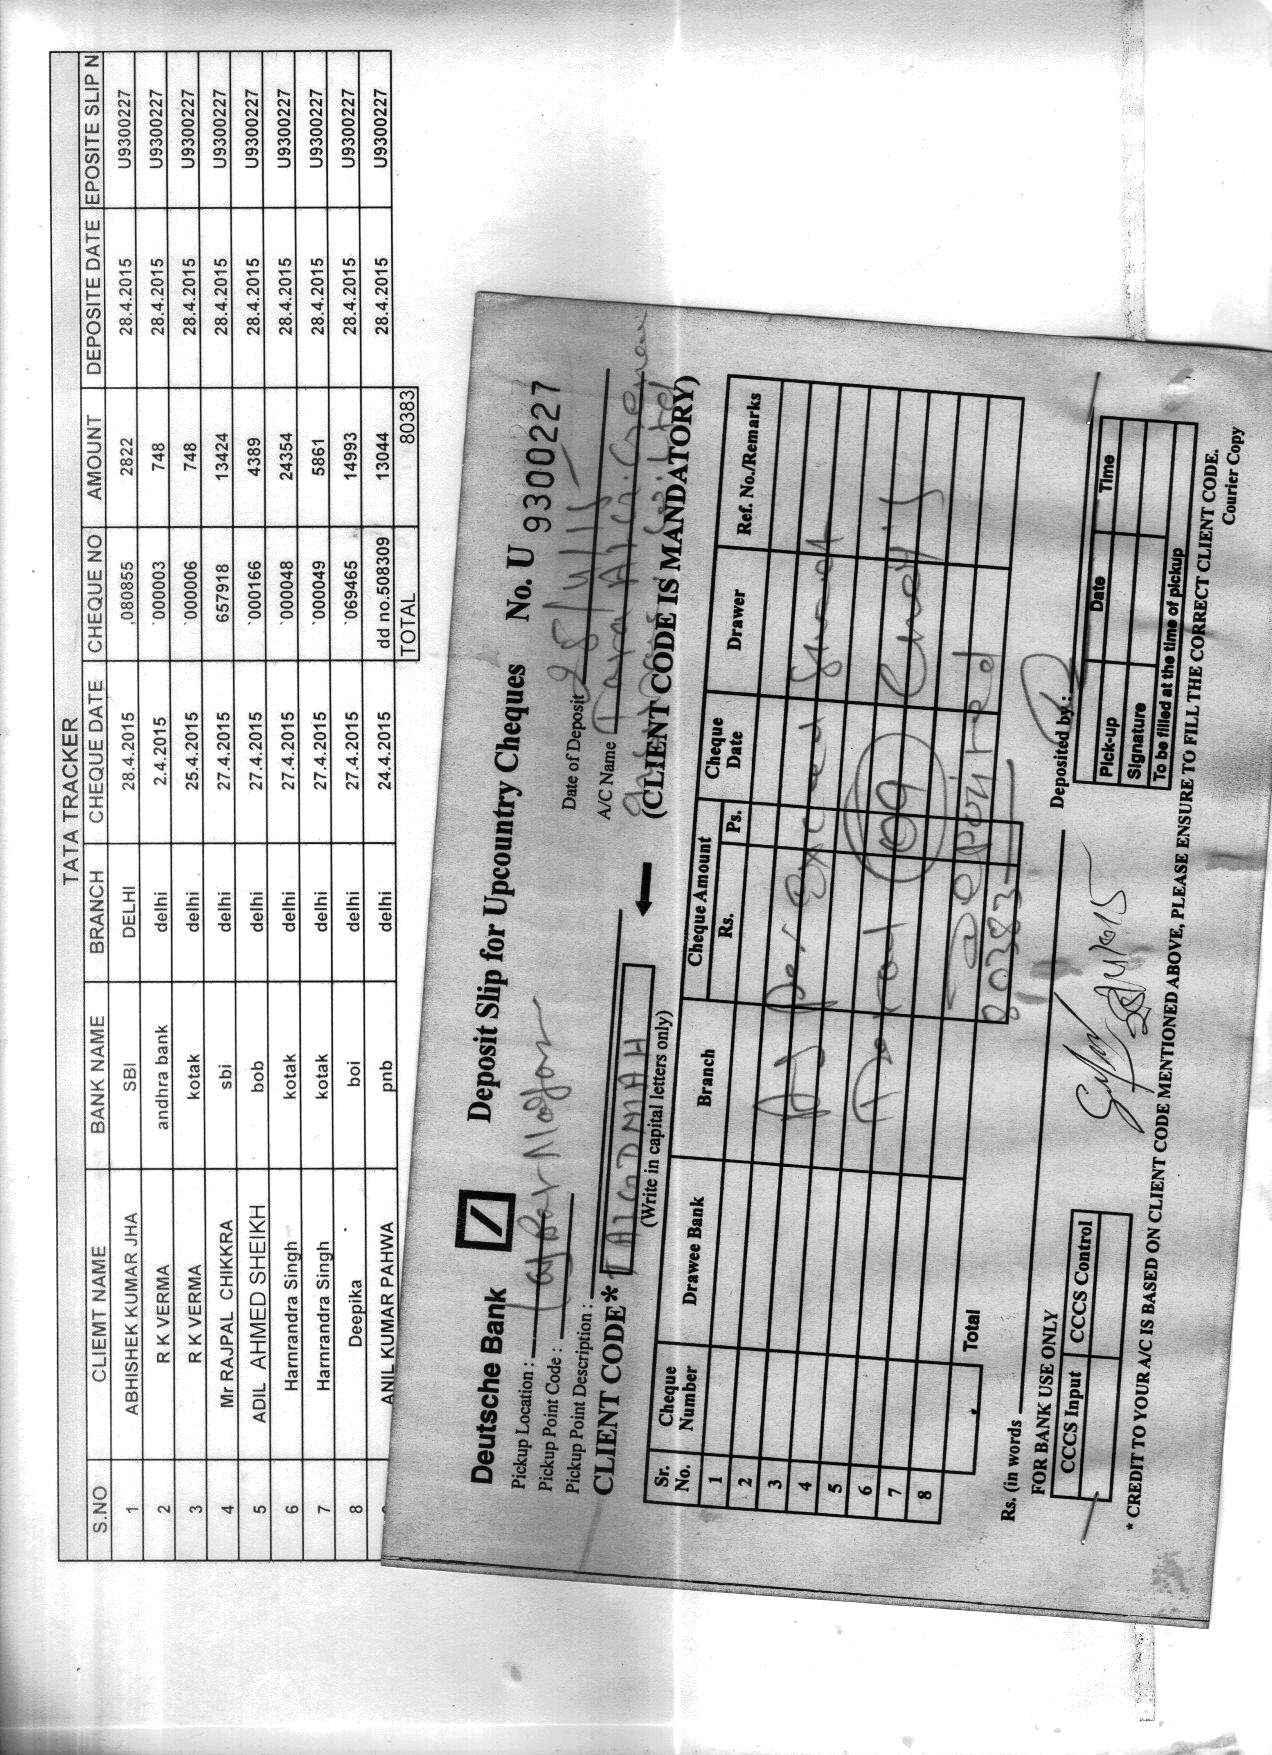 TATA TRACKER
S.NO CLIEMT NAME BANK NAME BRANCH CHEQUE DATE CHEQUE NO AMOUNT DEPOSITE DATE EPOSITE SLIP N
1 ABHISHEK KUMAR JHA SBI DELHI 28.4.2015 ,080855 2822 28.4.2015 U9300227
2 R K VERMA andhra bank delhi 2.4.2015 `000003 748 28.4.2015 U9300227
3 R K VERMA kotak delhi 25.4.2015 `000006 748 28.4.2015 U9300227
4 Mr RAJPAL CHIKKRA sbi delhi 27.4.2015 657918 13424 28.4.2015 U9300227
5 ADIL AHMED SHEIKH bob delhi 27.4.2015 `000166 4389 28.4.2015 U9300227
6 Harnrandra Singh kotak delhi 27.4.2015 `000048 24354 28.4.2015 U9300227
7 Harnrandra Singh kotak delhi 27.4.2015 `000049 5861 28.4.2015 U9300227
8 Deepika boi delhi 27.4.2015 `069465 14993 28.4.2015 U9300227
ANIL KUMAR PAHWA pnb delhi 24.4.2015 dd no.508309 13044 28.4.2015 U9300227
TOTAL 80383
Deutsche Bank Deposit Slip for Upcountry Cheques No. U 9300227
Pickup Location : Date of Deposit 28/4/15
Pickup Point Code : A/C Name Tata
Pickup Point Description :
CLIENT CODE* (CLIENT CODE IS MANDATORY)
(Write in capital letters only)
Sr. No. Cheque Number Drawee Bank Branch Cheque Amount Rs. Ps. Cheque Date Drawer Ref. No./Remarks
1
2
3 As per Excel Sheet
4
5
6 Total 09
7
8 Deposited
Total 80383
Rs. (in words Deposited by :
FOR BANK USE ONLY
CCCS Input CCCS Control
28/4/2015
Pick-up Date Time
Signature
To be filled at the time of pickup
* CREDIT TO YOUR A/C IS BASED ON CLIENT CODE MENTIONED ABOVE, PLEASE ENSURE TO FILL THE CORRECT CLIENT CODE.
Courier Copy